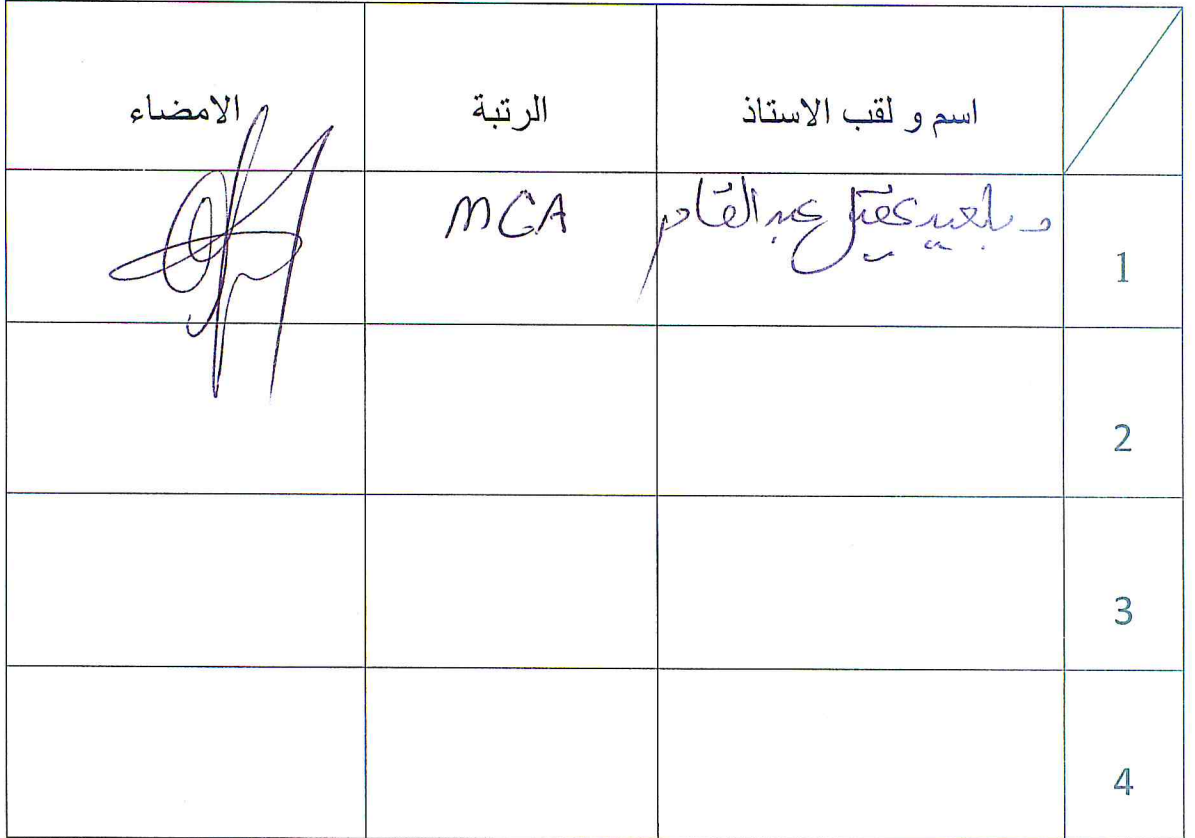 اسم و لقب الاستاذ الرتبة الامضاء
1 د بلعيد عقيل عبد القادر MCA
2
3
4